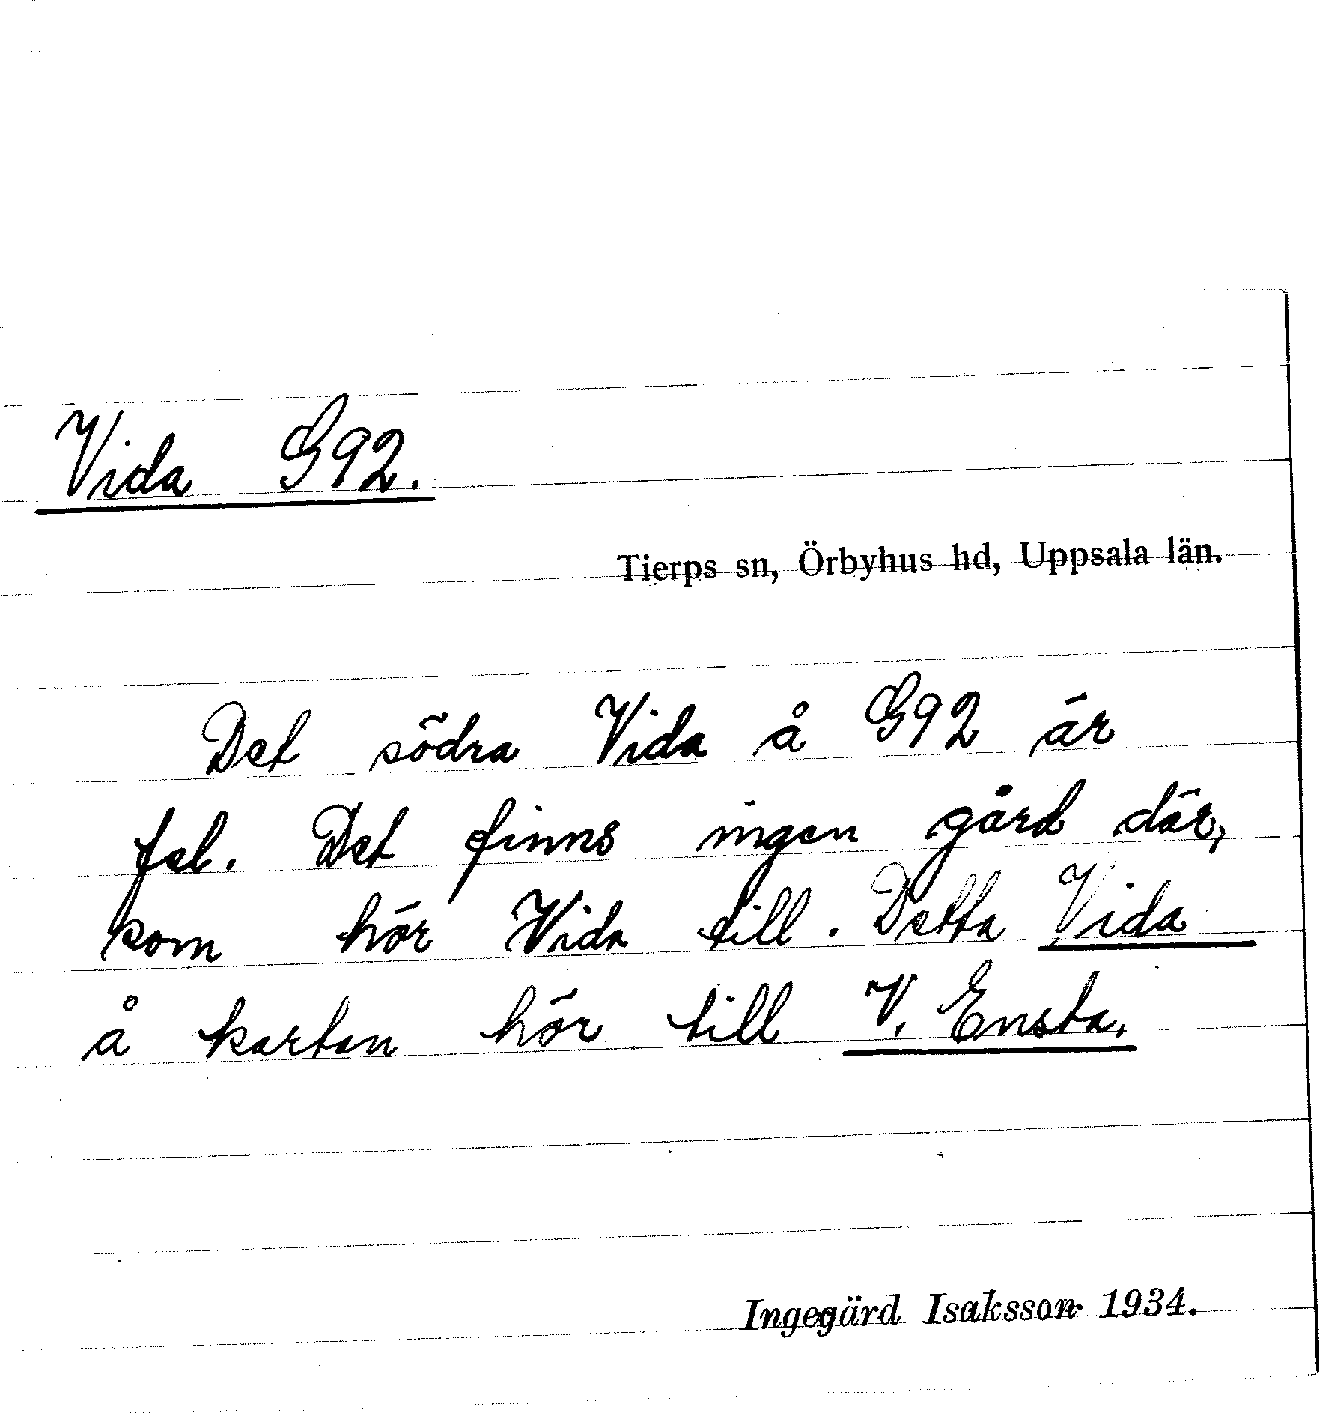 Vida G92.
Tierps sn, Örbyhus hd, Uppsala län.
Det södra Vida å G92 är
fel. Det finns ingen gård där,
som hör Vida till. Detta Vida
å kartan hör till V. Ensta.
Ingegärd Isaksson 1934.